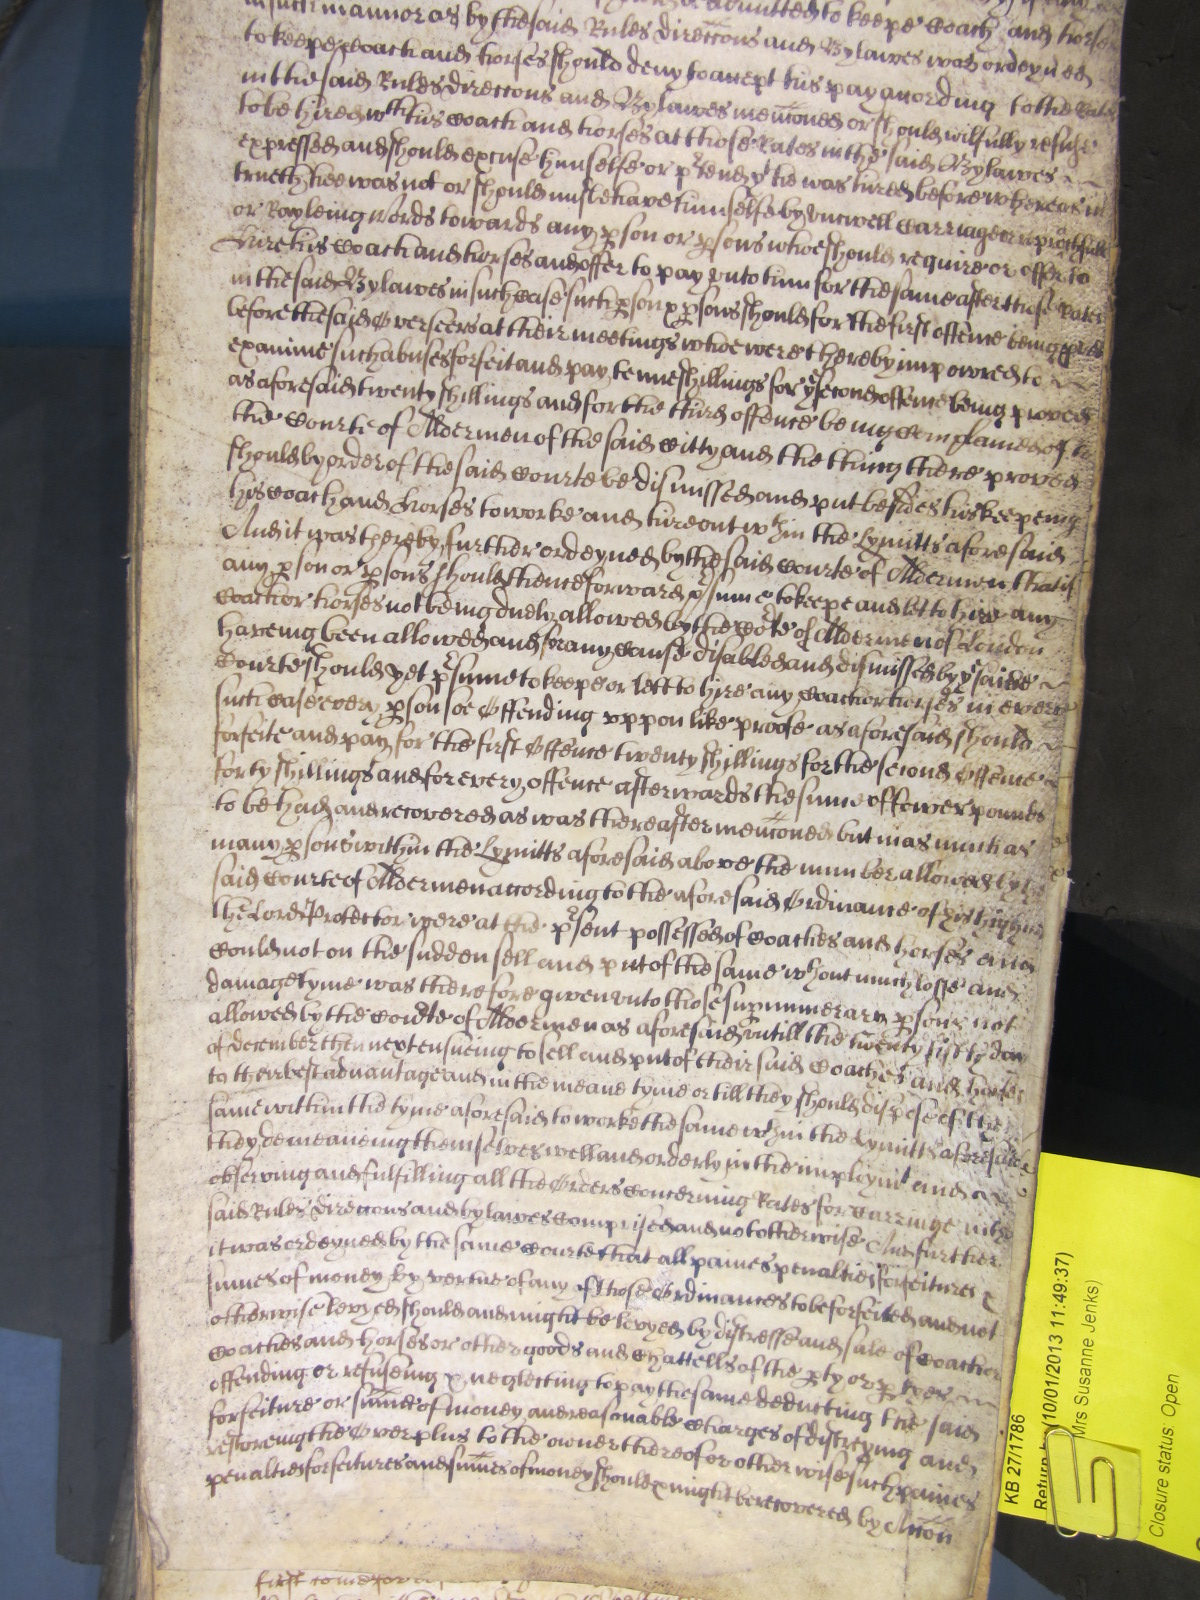 in such mannor as by the said Rules direccons and Bylawes was ordeyned
to keepe coach and horses should deny to accept his pay according to the Rates
in the said Rules direccons and Bylawes menconed or should wilfully refuse
to be hired wth his coach and horses at those Rates in the said Bylawes
expressed and should excuse himselfe or ptend yt he was hired before whereas in
trueth hee was not or should misbehave himselfe by uncivell carriage or reproachfull
or Rayleing words towards any pson or psons whoe should require or offer to
hire his coach and horses and offer to pay unto him for the same after those Rates
in the said Bylawes in such case such pson or psons should for the first offence being proved
before the said Overseers at their meetings whoe were thereby impowred to
examine such abuses forfeit and pay tenne shillings for ye second offence being proved
as aforesaid twenty shillings and for the third offence being complained of to
the Courte of Aldermen of the said Citty and the thing there proved
should by order of the said Courte be dismissed and put besides his keepeing
his coach and horses to worke and hire out wthin the Lymitts aforesaid
And it was thereby further ordeyned by the said Courte of Aldermen that if
any pson or psons should thenceforward psume to keepe and lett to hire any
Coach or horses not being duely allowed by the Corte of Aldermen of London
haveing been allowed and for any cause disabled and dismissed by ye saide
Courte should yet psume to keepe or lett to hire any coach or horses in every
such case every pson soe Offending uppon like proofe as aforesaid should
forfeite and pay for the first Offence twenty shillings for the second Offence
forty shillings and for every offence afterwards the sume of fower pounds
to be had and recovered as was thereafter menconed but in as much as
many psons within the Lymitts aforesaid above the number allowed by the
said Courte of Aldermen according to the aforesaid Ordinance of his highnes
the Lord Protector were at the psent possessed of Coaches and horses and
Could not on the sudden sell and put of the same wthout much losse and
damage tyme was therefore given unto those supnumerary psons not
allowed by the Courte of Aldermen as aforesaid untill the twenty day
of december then next ensueing to sell and put of their said Coaches and horses
to their best advantage and in the meane tyme or till they should dispose of the
same within the tyme aforesaid to worke the same wthin the Lymitts aforesaid
they demeaneing themselves well and orderly in the imploymt and
observing and fulfilling all the Orders Concerning Rates for carriage in the
said Rules direccons and bylawes Comprised and not otherwise And further
it was ordeyned by the same Courte that all paines penalties forfeitures &
sumes of money by vertue of any of those Ordinances to be forfeited and not
otherwise Levyed should and might be levyed by distresse and sale of Coach or
Coaches and horses or other goods and Chattells of the pty or ptyes
offending or refuseing or neglecting to pay the same deducting the said
forfeiture or summe of money and reasonable Charges of distreyning and
restoreing the Overplus to the owner thereof or otherwise such paines
penalties forfeitures and summes of money should or might be recovered by Accon
first
KB 27/1786
Return (10/01/2013 11:49:37)
Mrs Susanne Jenks)
Closure status: Open